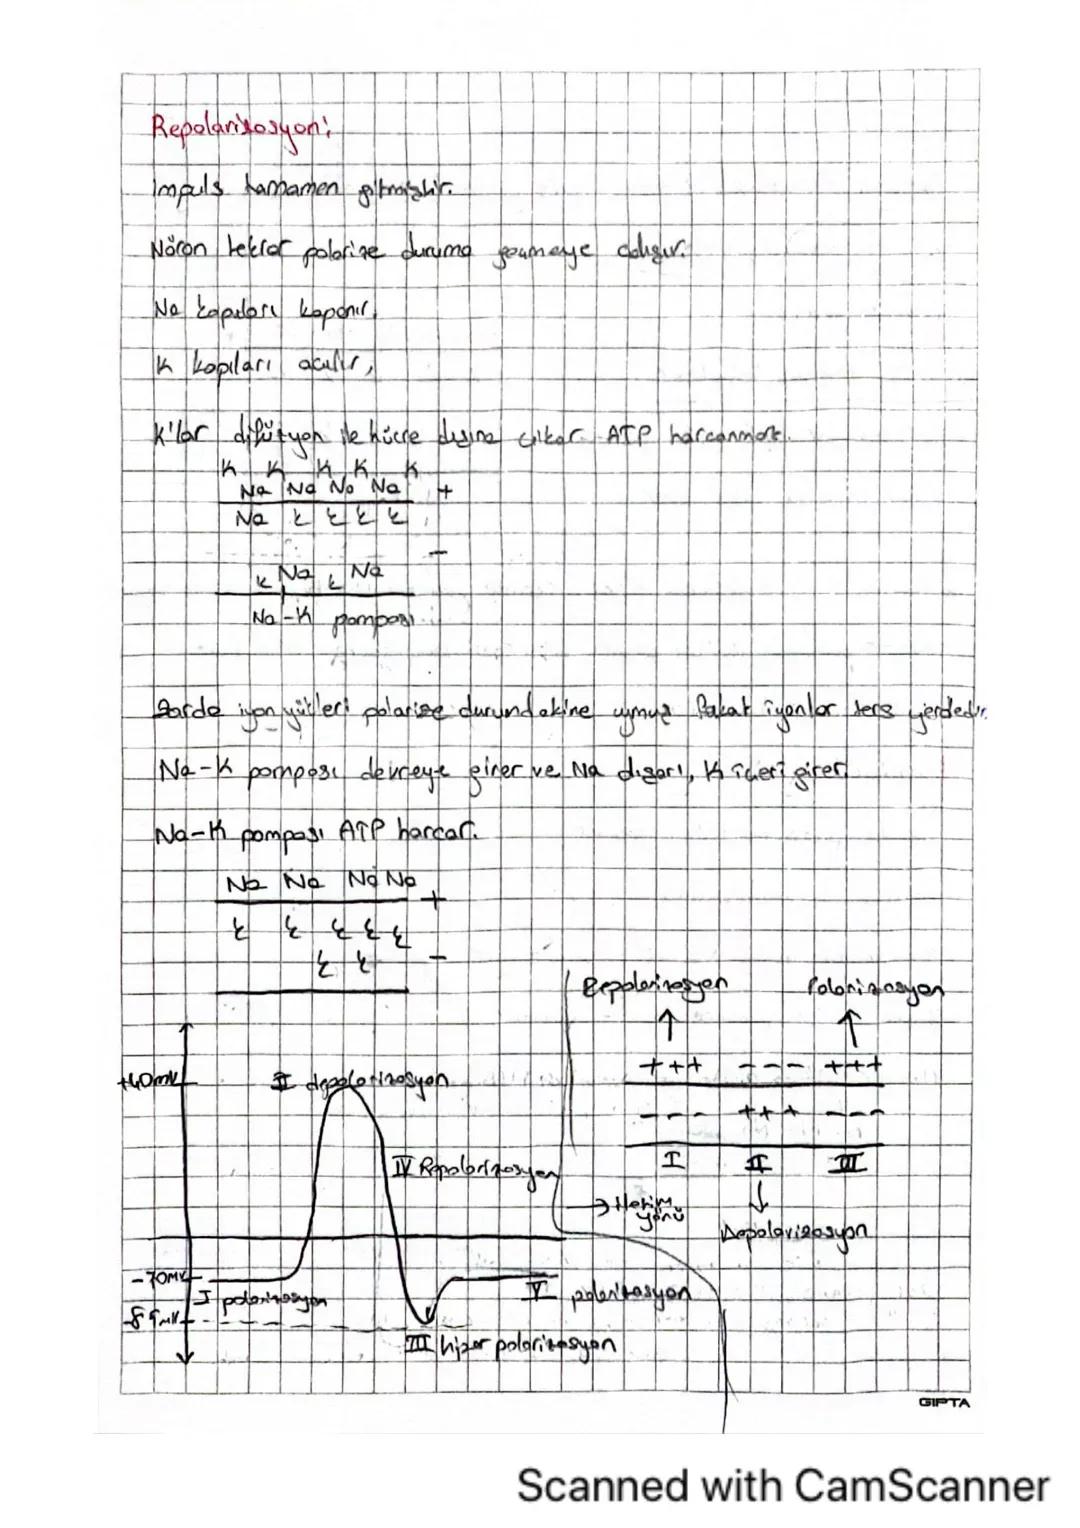 Repolarizasyon:
İmpuls tamamen gitmiştir.
Nöron tekrar polarize duruma geçmeye çalışır.
Na kapıları kapanır,
K kapıları açılır,
K'lar difüzyon ile hücre dışına çıkar ATP harcanmaz.
K K K K K
Na Na Na Na +
Na K K K K
-
K Na K Na
Na-K pompası
iyon yükleri polarize durumdakine uymuş fakat iyonlar ters yerdedir.
Na-K pompası devreye girer ve Na dışarı, K içeri girer.
Na-K pompası ATP harcar.
Na Na Na Na +
K K K K K
K K -
Repolarizasyon Polarizasyon
+++ --- +++
--- +++ ---
I II III
İletim yönü
Depolarizasyon
+40mV
II depolarizasyon
IV Repolarizasyon
-70mV
I polarizasyon
V polarizasyon
III hiper polarizasyon
GIPTA
Scanned with CamScanner